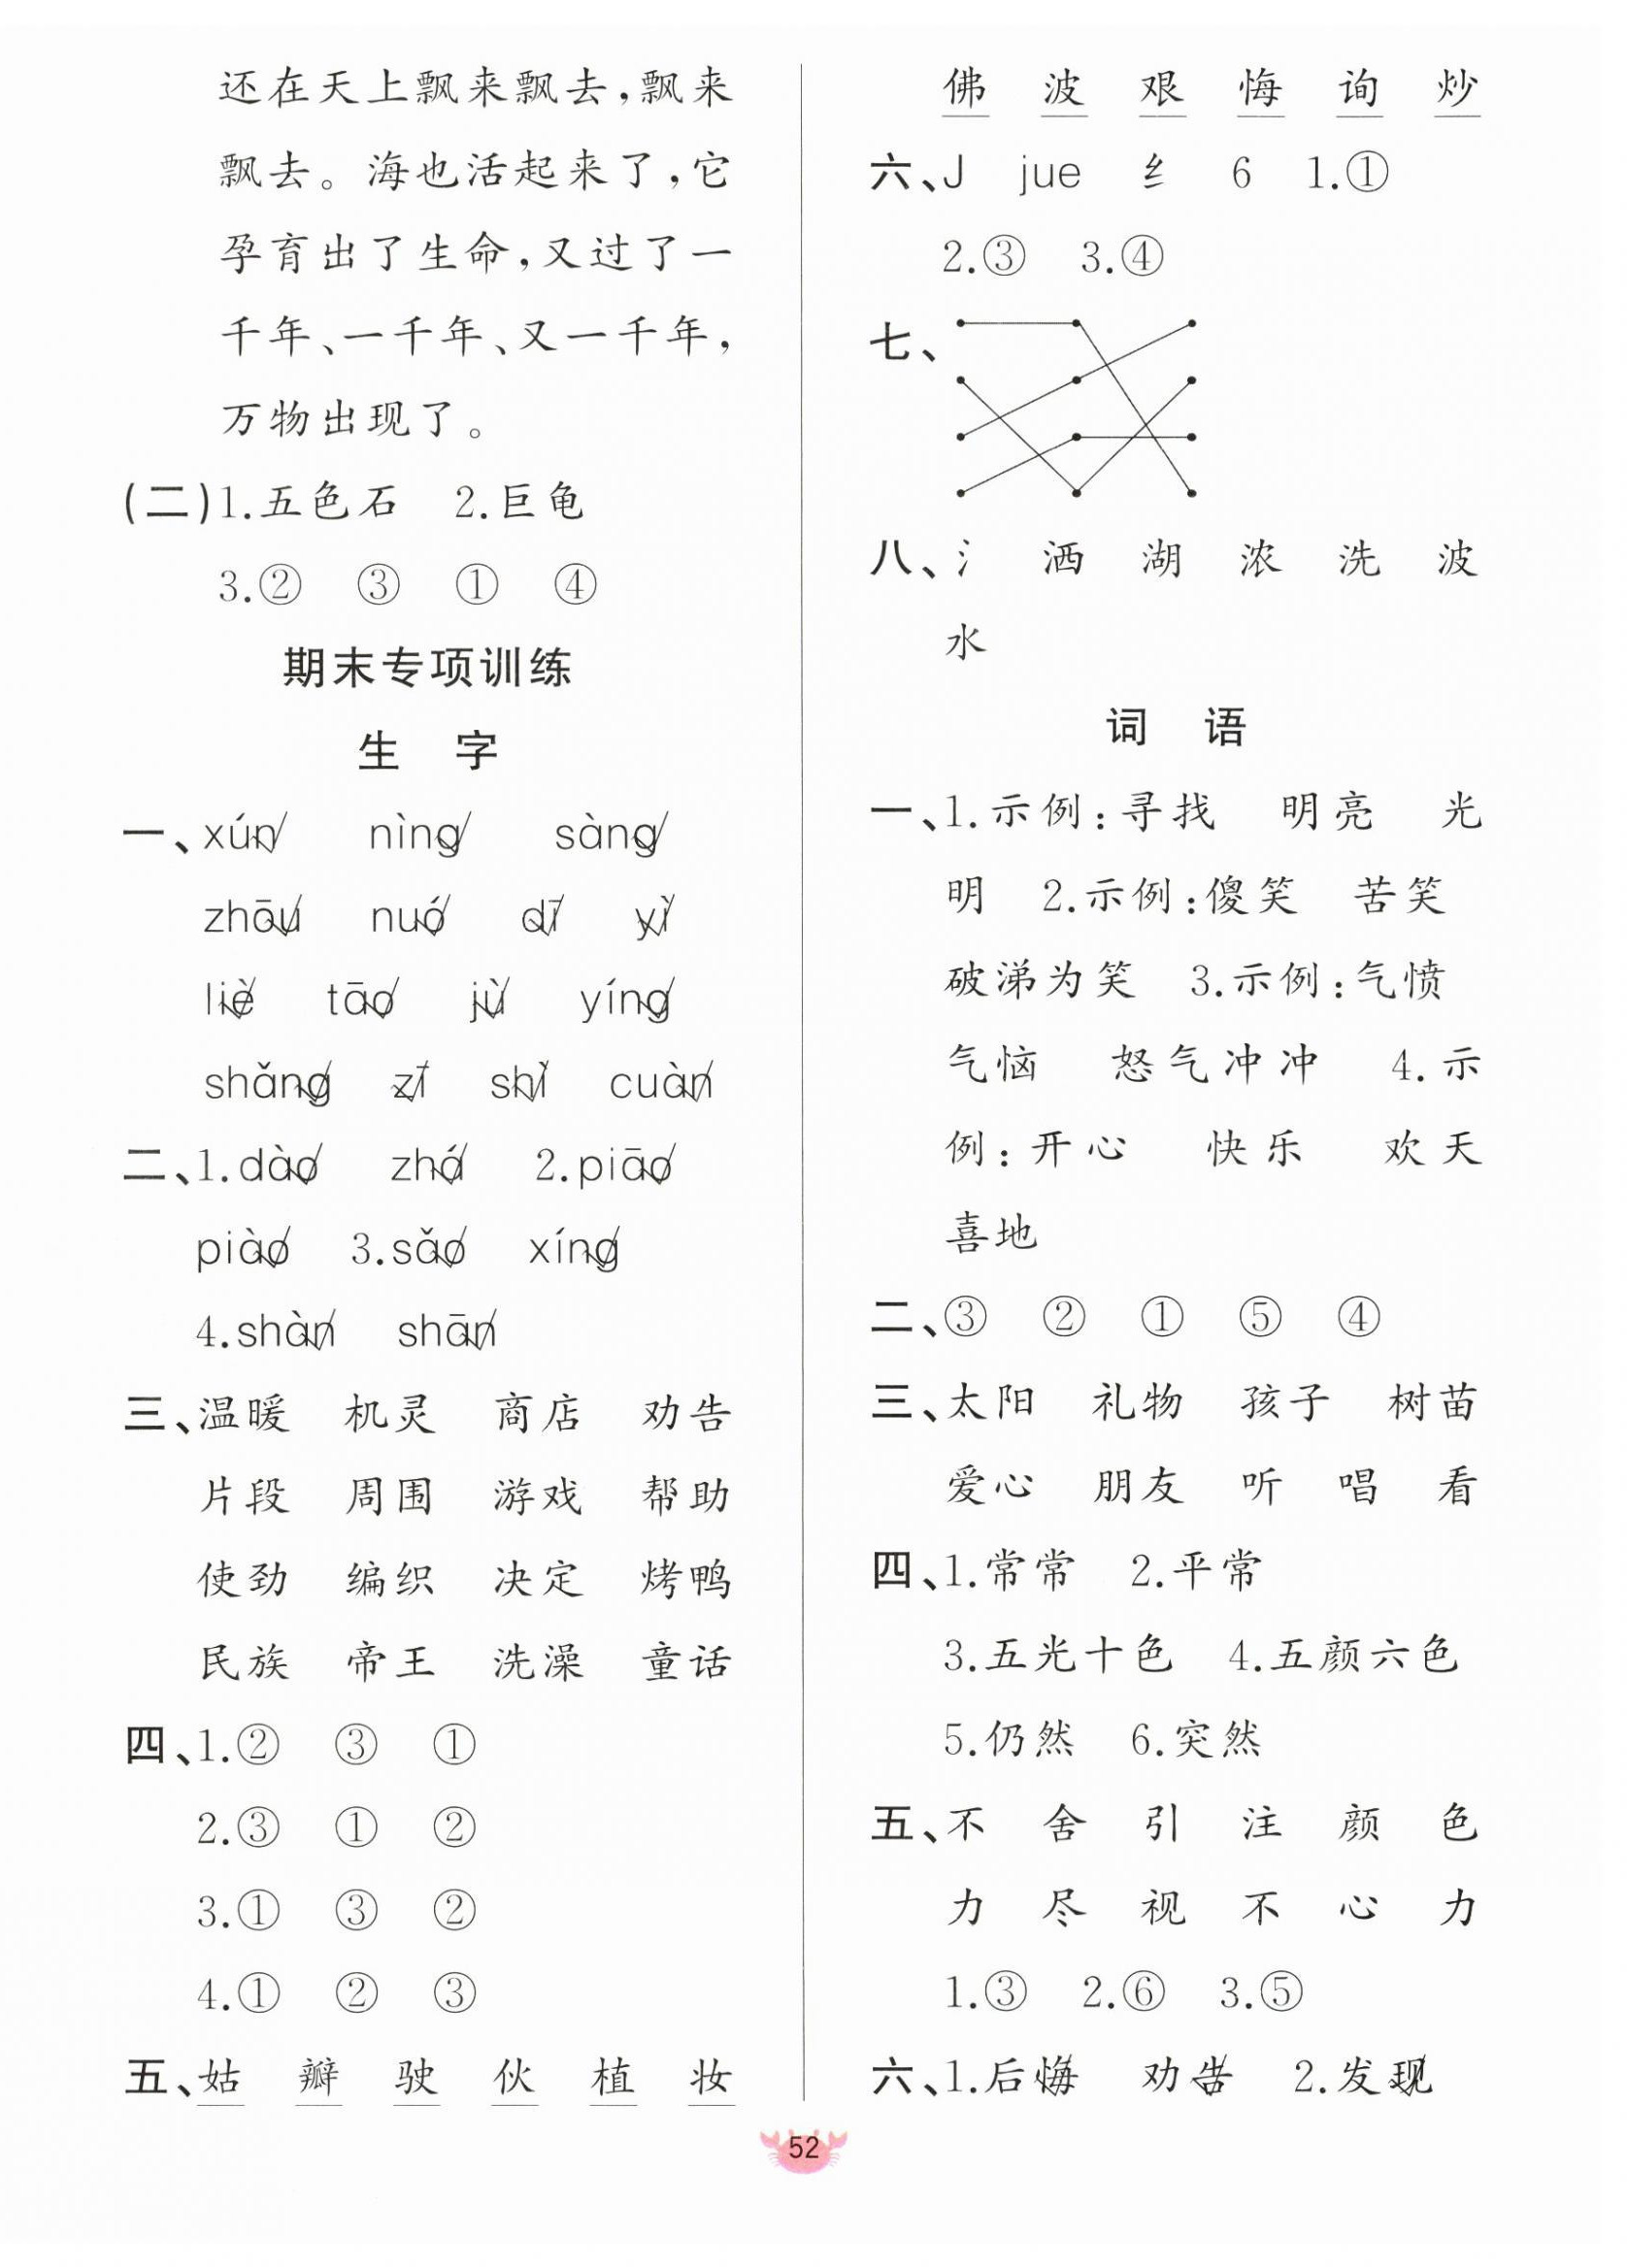 还在天上飘来飘去，飘来
飘去。海也活起来了，它
孕育出了生命，又过了一
千年、一千年、又一千年，
万物出现了。
(二)1.五色石 2.巨龟
3.② ③ ① ④
期末专项训练
生 字
一、xún nìng sàng
zhōu nuó dī yì
liè tāo jù yíng
shǎng zī shì cuàn
二、1.dào zhá 2.piāo
piào 3.sǎo xíng
4.shàn shān
三、温暖 机灵 商店 劝告
片段 周围 游戏 帮助
使劲 编织 决定 烤鸭
民族 帝王 洗澡 童话
四、1.② ③ ①
2.③ ① ②
3.① ③ ②
4.① ② ③
五、姑 瓣 驶 伙 植 妆
佛 波 艰 悔 询 炒
六、J jue 纟 6 1.①
2.③ 3.④
七、
八、氵 洒 湖 浓 洗 波
水
词 语
一、1.示例：寻找 明亮 光
明 2.示例：傻笑 苦笑
破涕为笑 3.示例：气愤
气恼 怒气冲冲 4.示
例：开心 快乐 欢天
喜地
二、③ ② ① ⑤ ④
三、太阳 礼物 孩子 树苗
爱心 朋友 听 唱 看
四、1.常常 2.平常
3.五光十色 4.五颜六色
5.仍然 6.突然
五、不 舍 引 注 颜 色
力 尽 视 不 心 力
1.③ 2.⑥ 3.⑤
六、1.后悔 劝告 2.发现
52